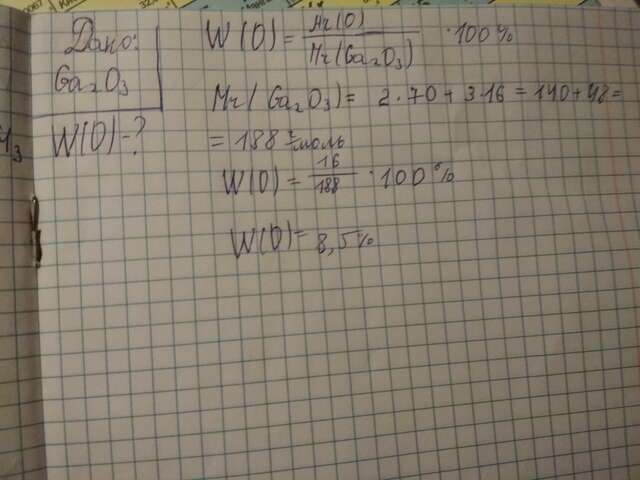 Дано:
Ga₂O₃
W(O)-?
W(O) = Ar(O) / Mr(Ga₂O₃) · 100%
Mr(Ga₂O₃) = 2·70+3·16 = 140+48 =
= 188 г/моль
W(O) = 16/188 · 100%
W(O) = 8,5%